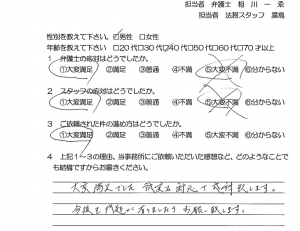 担当者 弁護士 相川 一
担当者 法務スタッフ 廣島
性別を教えて下さい。☑男性 □女性
年齢を教えて下さい □20代□30代□40代□50代□60代□70才以上
1 弁護士の応対はどうでしたか。
①大変満足 ②満足 ③普通 ④不満 ⑤大変不満 ⑥分からない
2 スタッフの応対はどうでしたか。
①大変満足 ②満足 ③普通 ④不満 ⑤大変不満 ⑥分からない
3 ご依頼された件の進め方はどうでしたか。
①大変満足 ②満足 ③普通 ④不満 ⑤大変不満 ⑥分からない
4 上記1～3の理由、当事務所にご依頼いただいた感想など、どのようなことで
も結構ですからお書きください。
大変満足でした 誠実な対応で感謝致します。
今後も問題が有りましたらお願い致します。